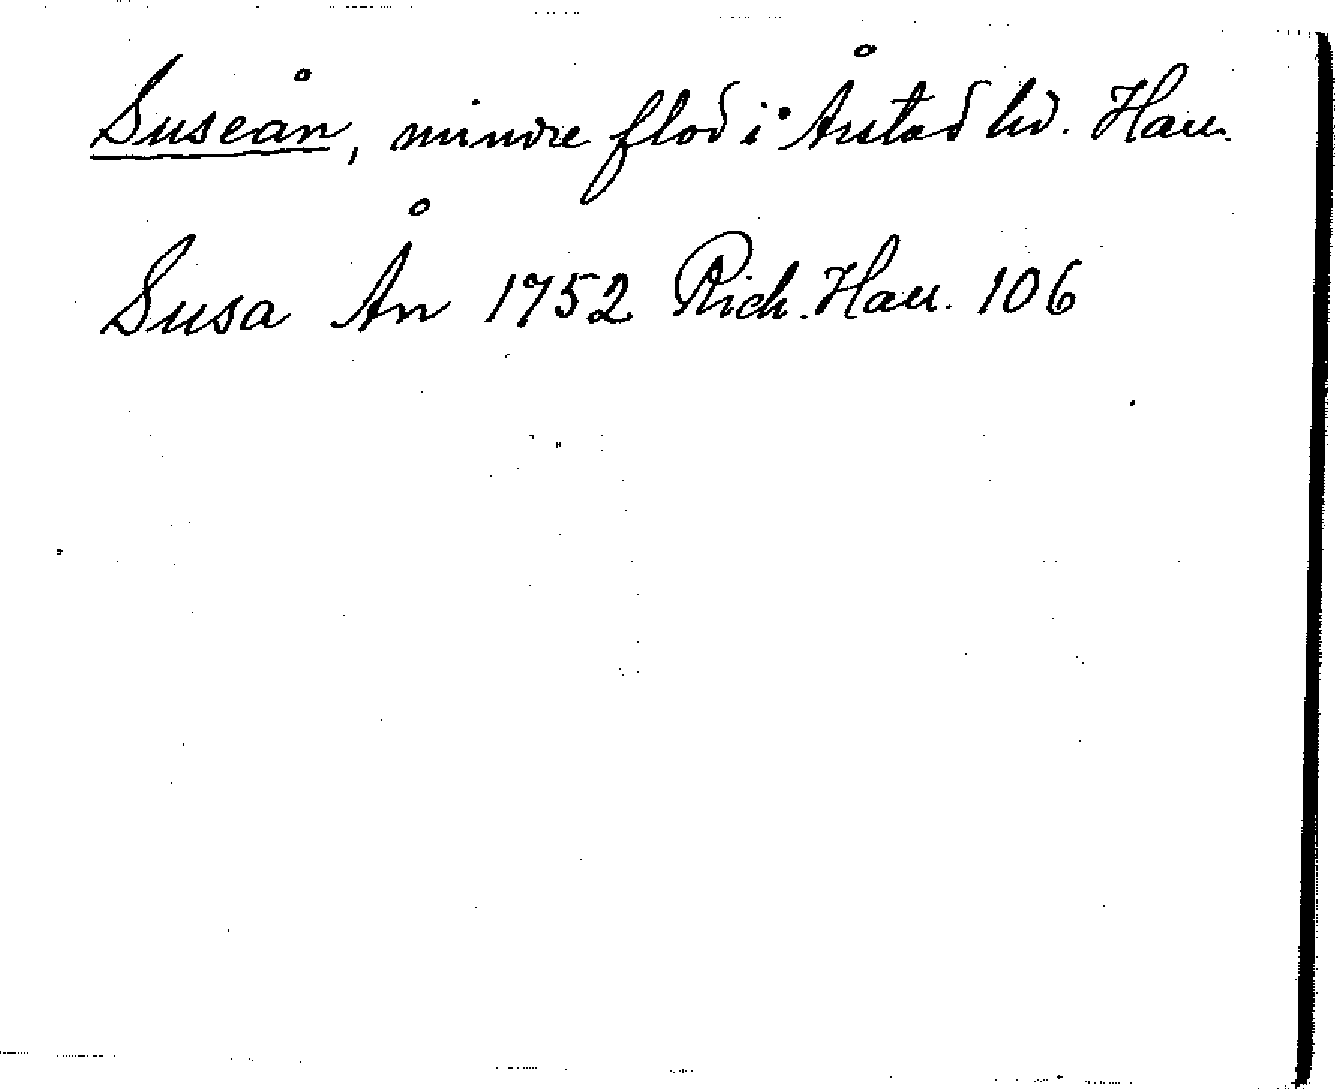 Suseån, mindre flod i Årstad hd. Hall.
Susa Ån 1752 Rich. Hall. 106